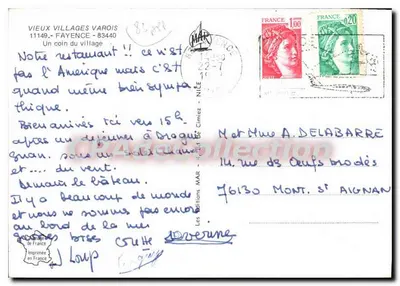 VIEUX VILLAGES VAROIS
11149.- FAYENCE - 83440
Un coin du village
Notre restaurant !! ce n'est
pas l'Amérique mais c'est
quand même bien sympa
thique.
Bien arrivés ici vers 15h.
après un déjeuner à Dragui
gnan. sous un soleil
et .... du vent.
Demain le bateau.
Il y a beaucoup de monde
et nous ne sommes pas encore
au bord de la mer
grosses bises Colette Séverine
J Loup
MAR
Les Editions MAR
de Cimiez - NICE
FRANCE
1,00
FRANCE
0,20
M et Mme A. DELABARRE
14. rue des Oeufs brodés
76130 MONT. St AIGNAN
de France
Imprimé
en France